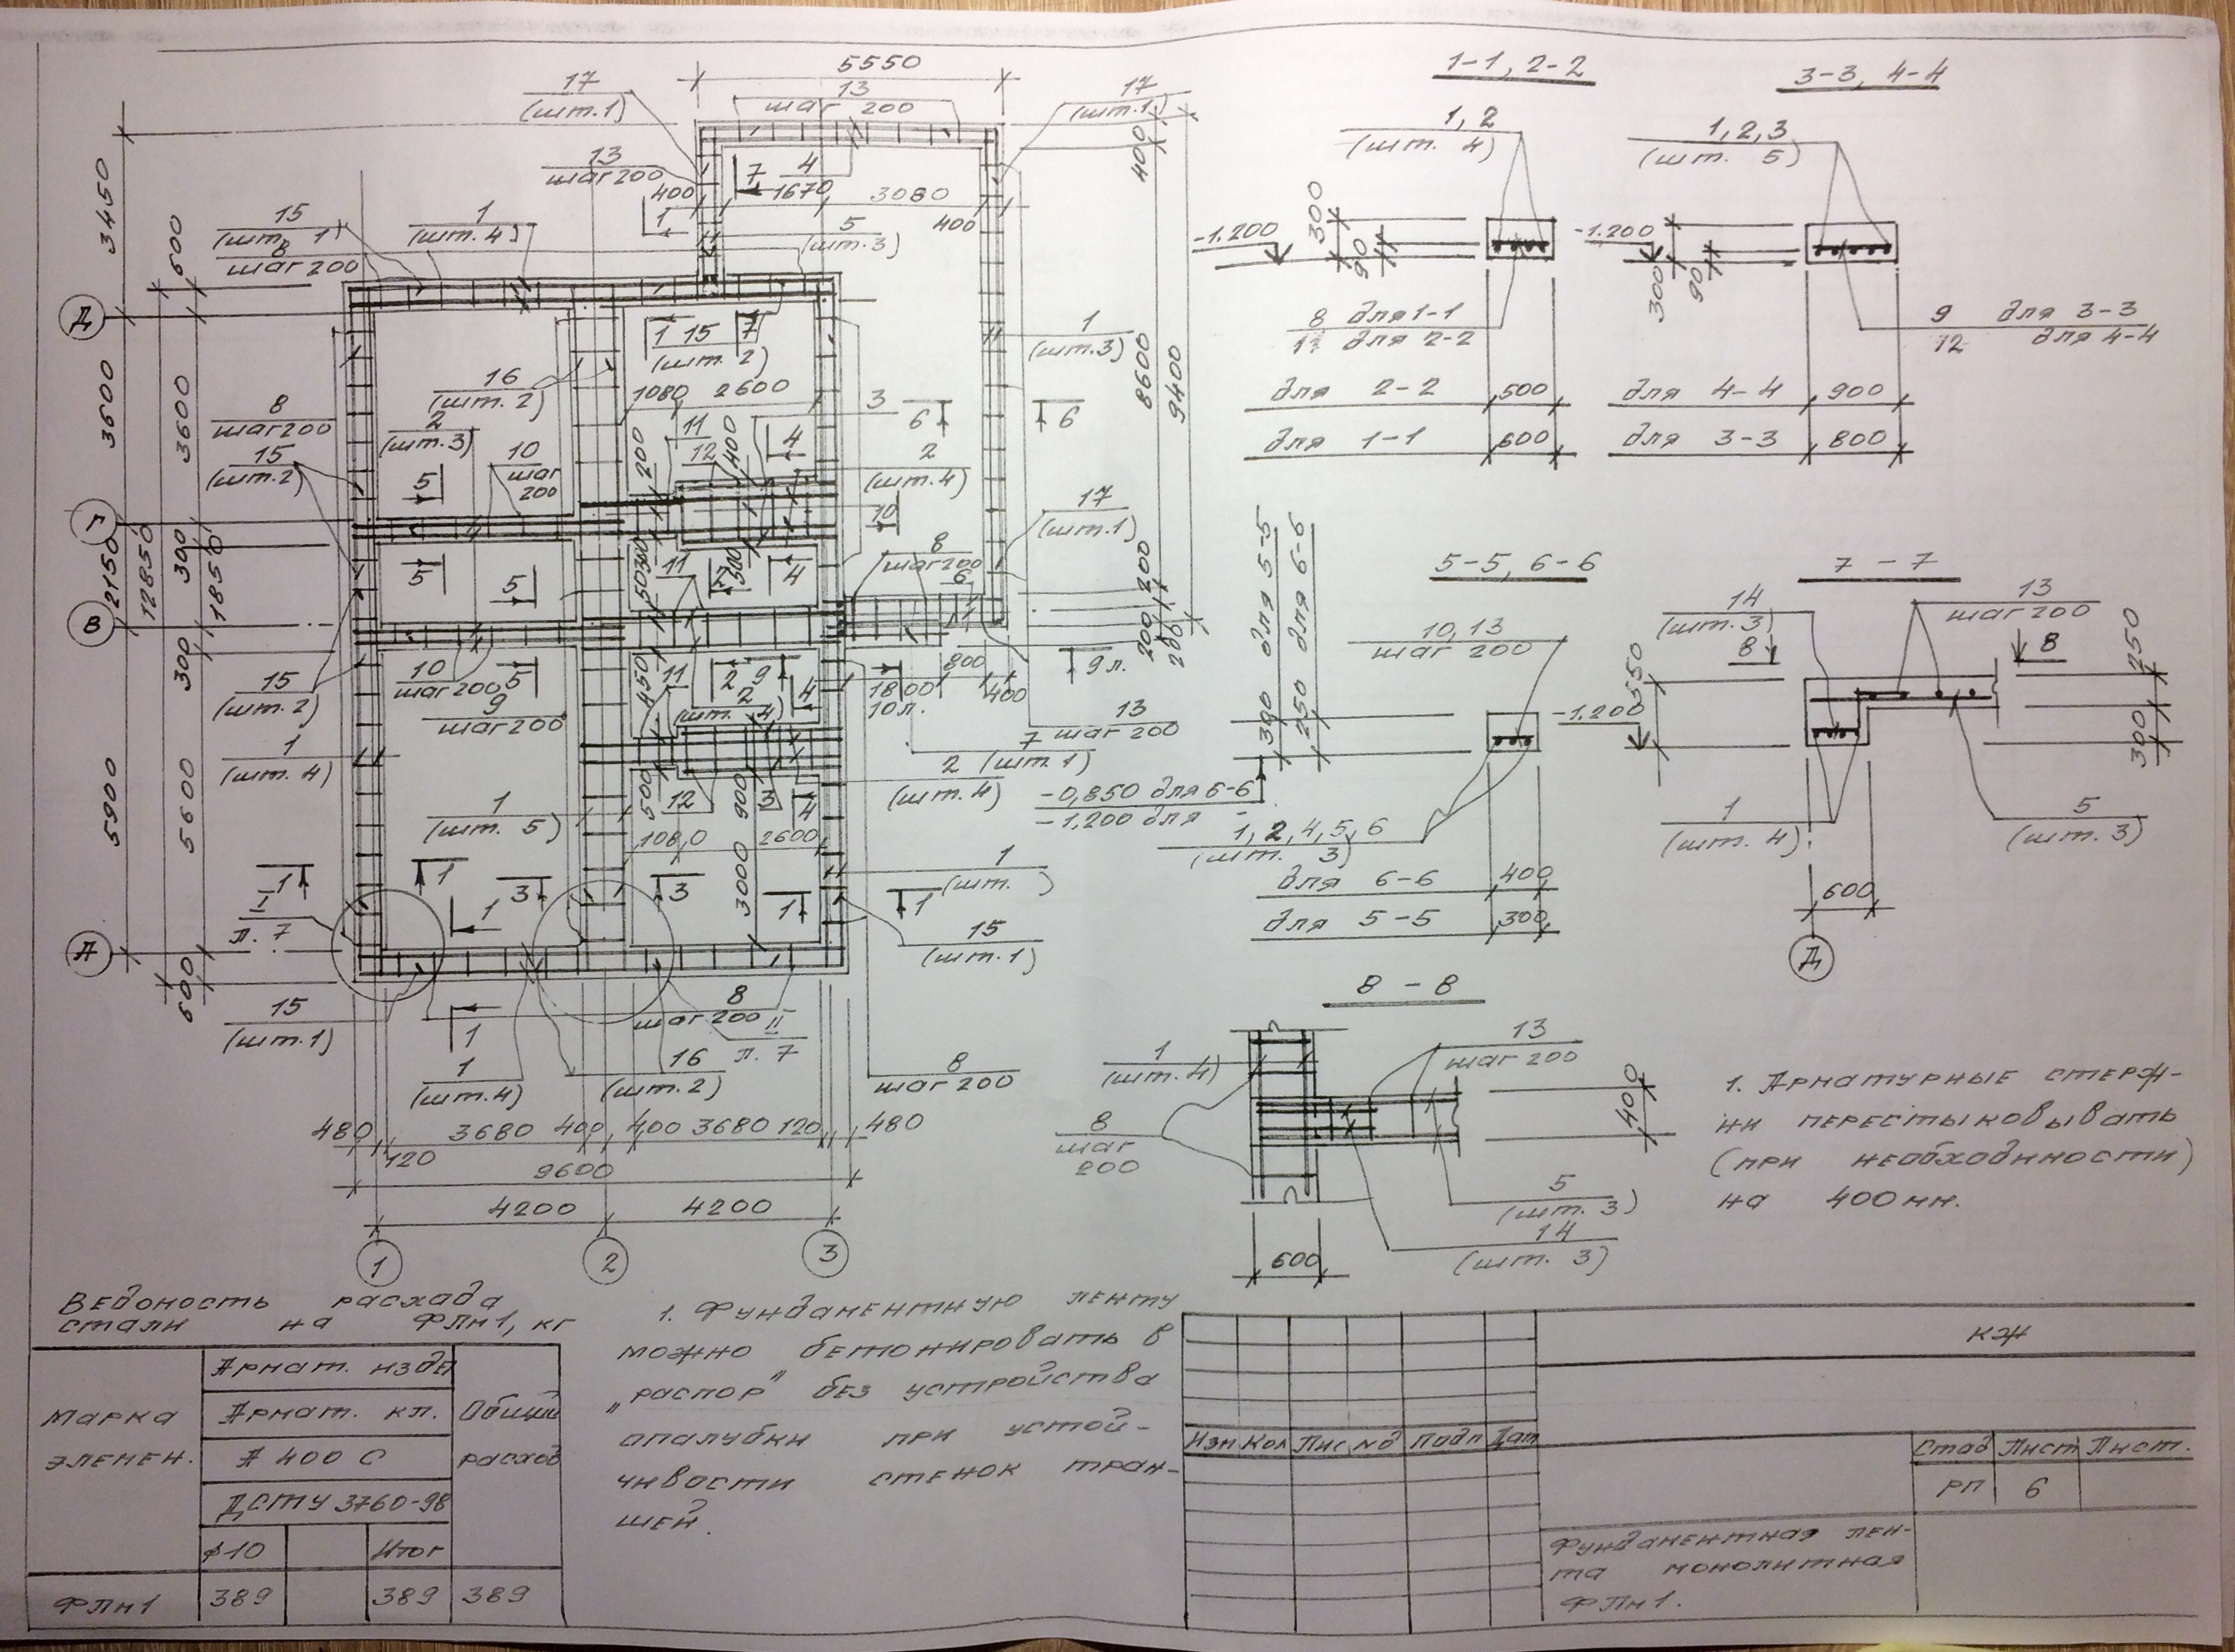 5550
17
(шт.1)
13
шаг 200
17
(шт.1)
13
шаг 200
400
7
4
1670
3080
400
400
1
5
(шт.3)
3450
600
15
(шт. 1)
8
шаг 200
1
(шт.4)
Д
1 15 7
(шт. 2)
1
(шт.3)
8600
9400
3600
3600
16
(шт.2)
1080 2600
8
шаг 200
2
(шт.3)
3
6
6
15
(шт.2)
10
шаг
200
11
12
200
400
4
2
(шт.4)
5
17
(шт.1)
10
Г
2150
12850
300
1850
5
5
500
11
4
8
шаг 200
6
200
200
200
В
300
15
(шт.2)
10
шаг 200
5
9
шаг 200
450
11
2
9
2
(шт. 4)
4
1800
10 л.
800
400
9 л.
13
шаг 200
1
(шт. 4)
7
(шт. 1)
2
(шт.4)
5900
5600
1
(шт. 5)
500
12
900
3
4
1080
2600
3000
1
(шт. )
1
I
л. 7
1
3
3
1
1
1
А
15
(шт.1)
600
15
(шт.1)
1
8
шаг 200
II
л. 7
1
(шт.4)
16
(шт.2)
8
шаг 200
480
3680
400
400
3680
120
480
120
9600
4200
4200
1
2
3
1-1, 2-2
1, 2
(шт. 4)
-1.200
300
90
8 для 1-1
11 для 2-2
для 2-2 500
для 1-1 600
3-3, 4-4
1, 2, 3
(шт. 5)
-1.200
300
90
9 для 3-3
12 для 4-4
для 4-4 900
для 3-3 800
5-5, 6-6
300 для 5-5
250 для 6-6
10, 13
шаг 200
-0,850 для 6-6
-1,200 для -
1, 2, 4, 5, 6
(шт. 3)
для 6-6 400
для 5-5 300
7 - 7
14
(шт.3)
13
шаг 200
8
8
550
250
-1.200
300
1
(шт. 4)
5
(шт. 3)
600
Д
8 - 8
1
(шт.4)
13
шаг 200
8
шаг
200
400
5
(шт. 3)
14
(шт. 3)
600
1. Арматурные стерж-
ни перестыковывать
(при необходимости)
на 400 мм.
Ведомость расхада
стали на ФЛм1, кг
Марка
элемен.
Армат. издел
Армат. кл.
А 400 С
ДСТУ 3760-98
Общий
расход
ф10
Итог
ФЛм1 389 389 389
1. Фундаментную ленту
можно бетонировать в
„распор" без устройства
апалубки при устой-
чивости стенок тран-
шеи.
КЖ
Изм Кол Лис № Подп Дат
Стад Лист Лист.
РП 6
Фундаментная лен-
та монолитная
ФЛм1.